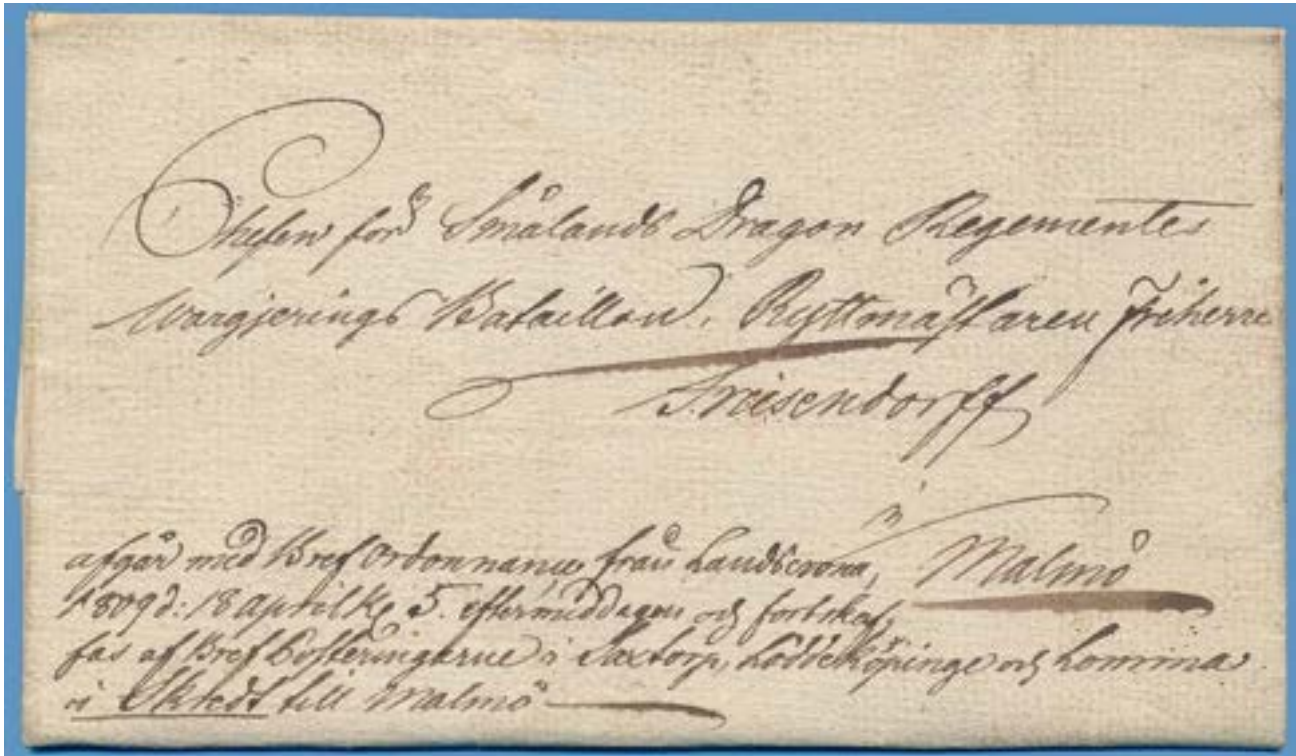 Chefen för Smålands Dragon Regementes
Wargerings Bataillon, Ryttmästaren Friherre
Freisendorff
i Malmö
afgår med Bref Ordonnance från Landscrona,
1809 d: 18 april kl. 5. eftermiddagen och fortskaf,
fas af Bref Posteringarne i Saxtorp, Löddeköpinge och Lomma
i till Malmö